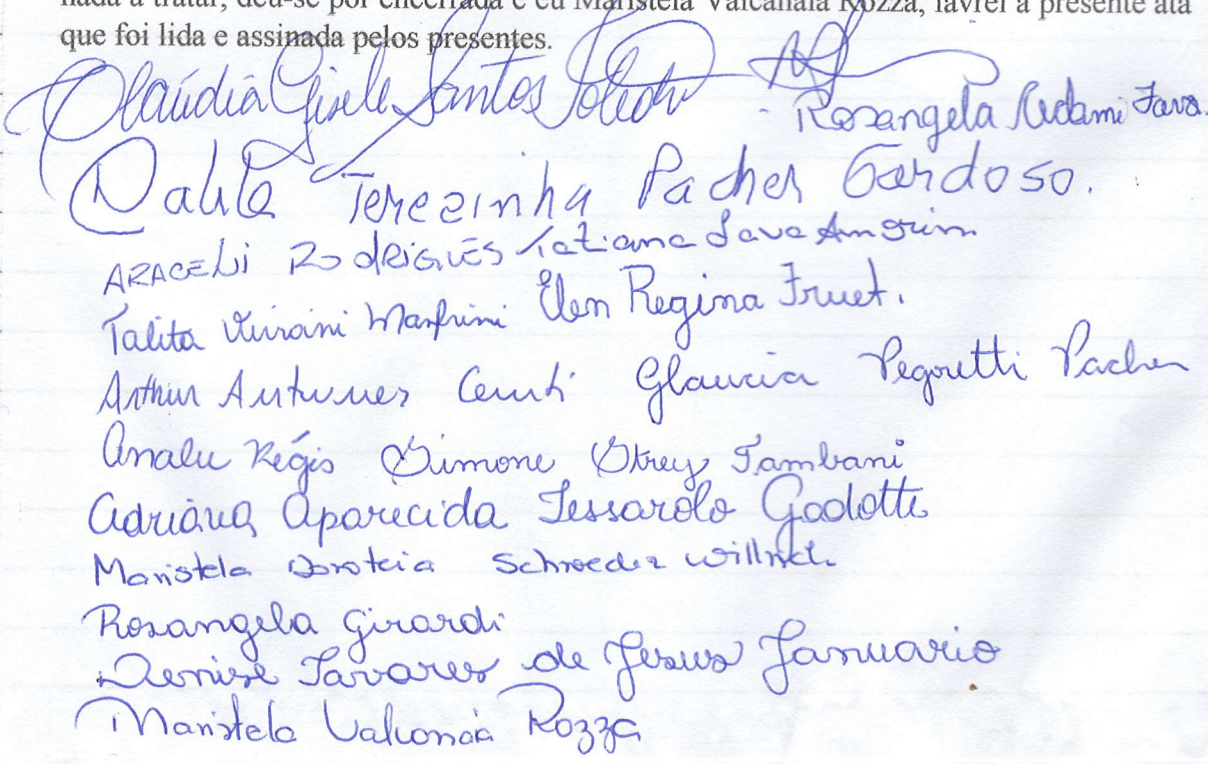 nada a tratar, deu-se por encerrada e eu Maristela Valcanaia Rozza, lavrei a presente ata
que foi lida e assinada pelos presentes.
Claúdia Gisele Santos Toledo
Rosangela Fava.
Dalila Terezinha Pacher Cardoso.
ARACELi RodRIGUES Tatiana Fava Amorim
Talita Viviani Manfrini Elen Regina Fruet.
Arthur Antunes Glaucia Pegoretti Pacher
Analu Régis Simone Strey Tambani
Adriana Aparecida Tessarolo Gadotti
Maristela Doroteia Schroeder Willrich
Rosangela Girardi
Denise Tavares de Jesus Januario
Maristela Valcanaia Rozza